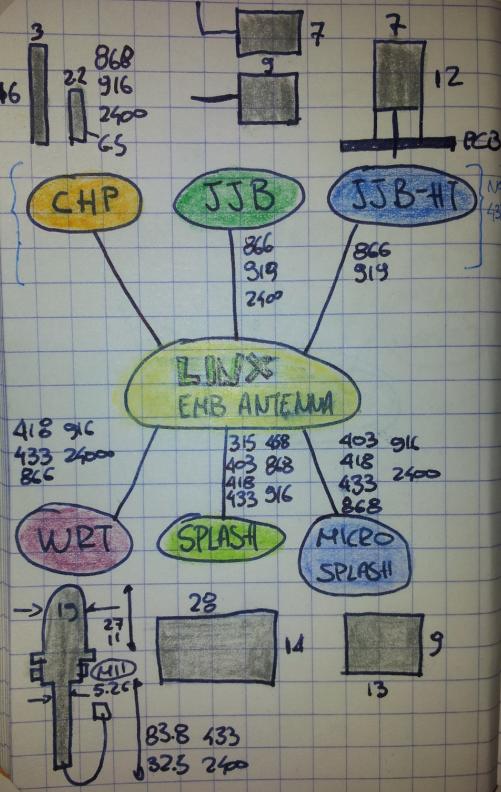 3
7
7
16
22
868
916
2400
65
9
12
PCB
CHP
JJB
JJB-HT
866
919
2400
866
919
LINX
EMB ANTENNA
418 916
433 2400
866
315 418
403 868
418
433 916
403 916
418
433 2400
868
WRT
SPLASH
MICRO
SPLASH
19
27
11
M11
5.26
28
14
9
13
83.8 433
32.5 2400